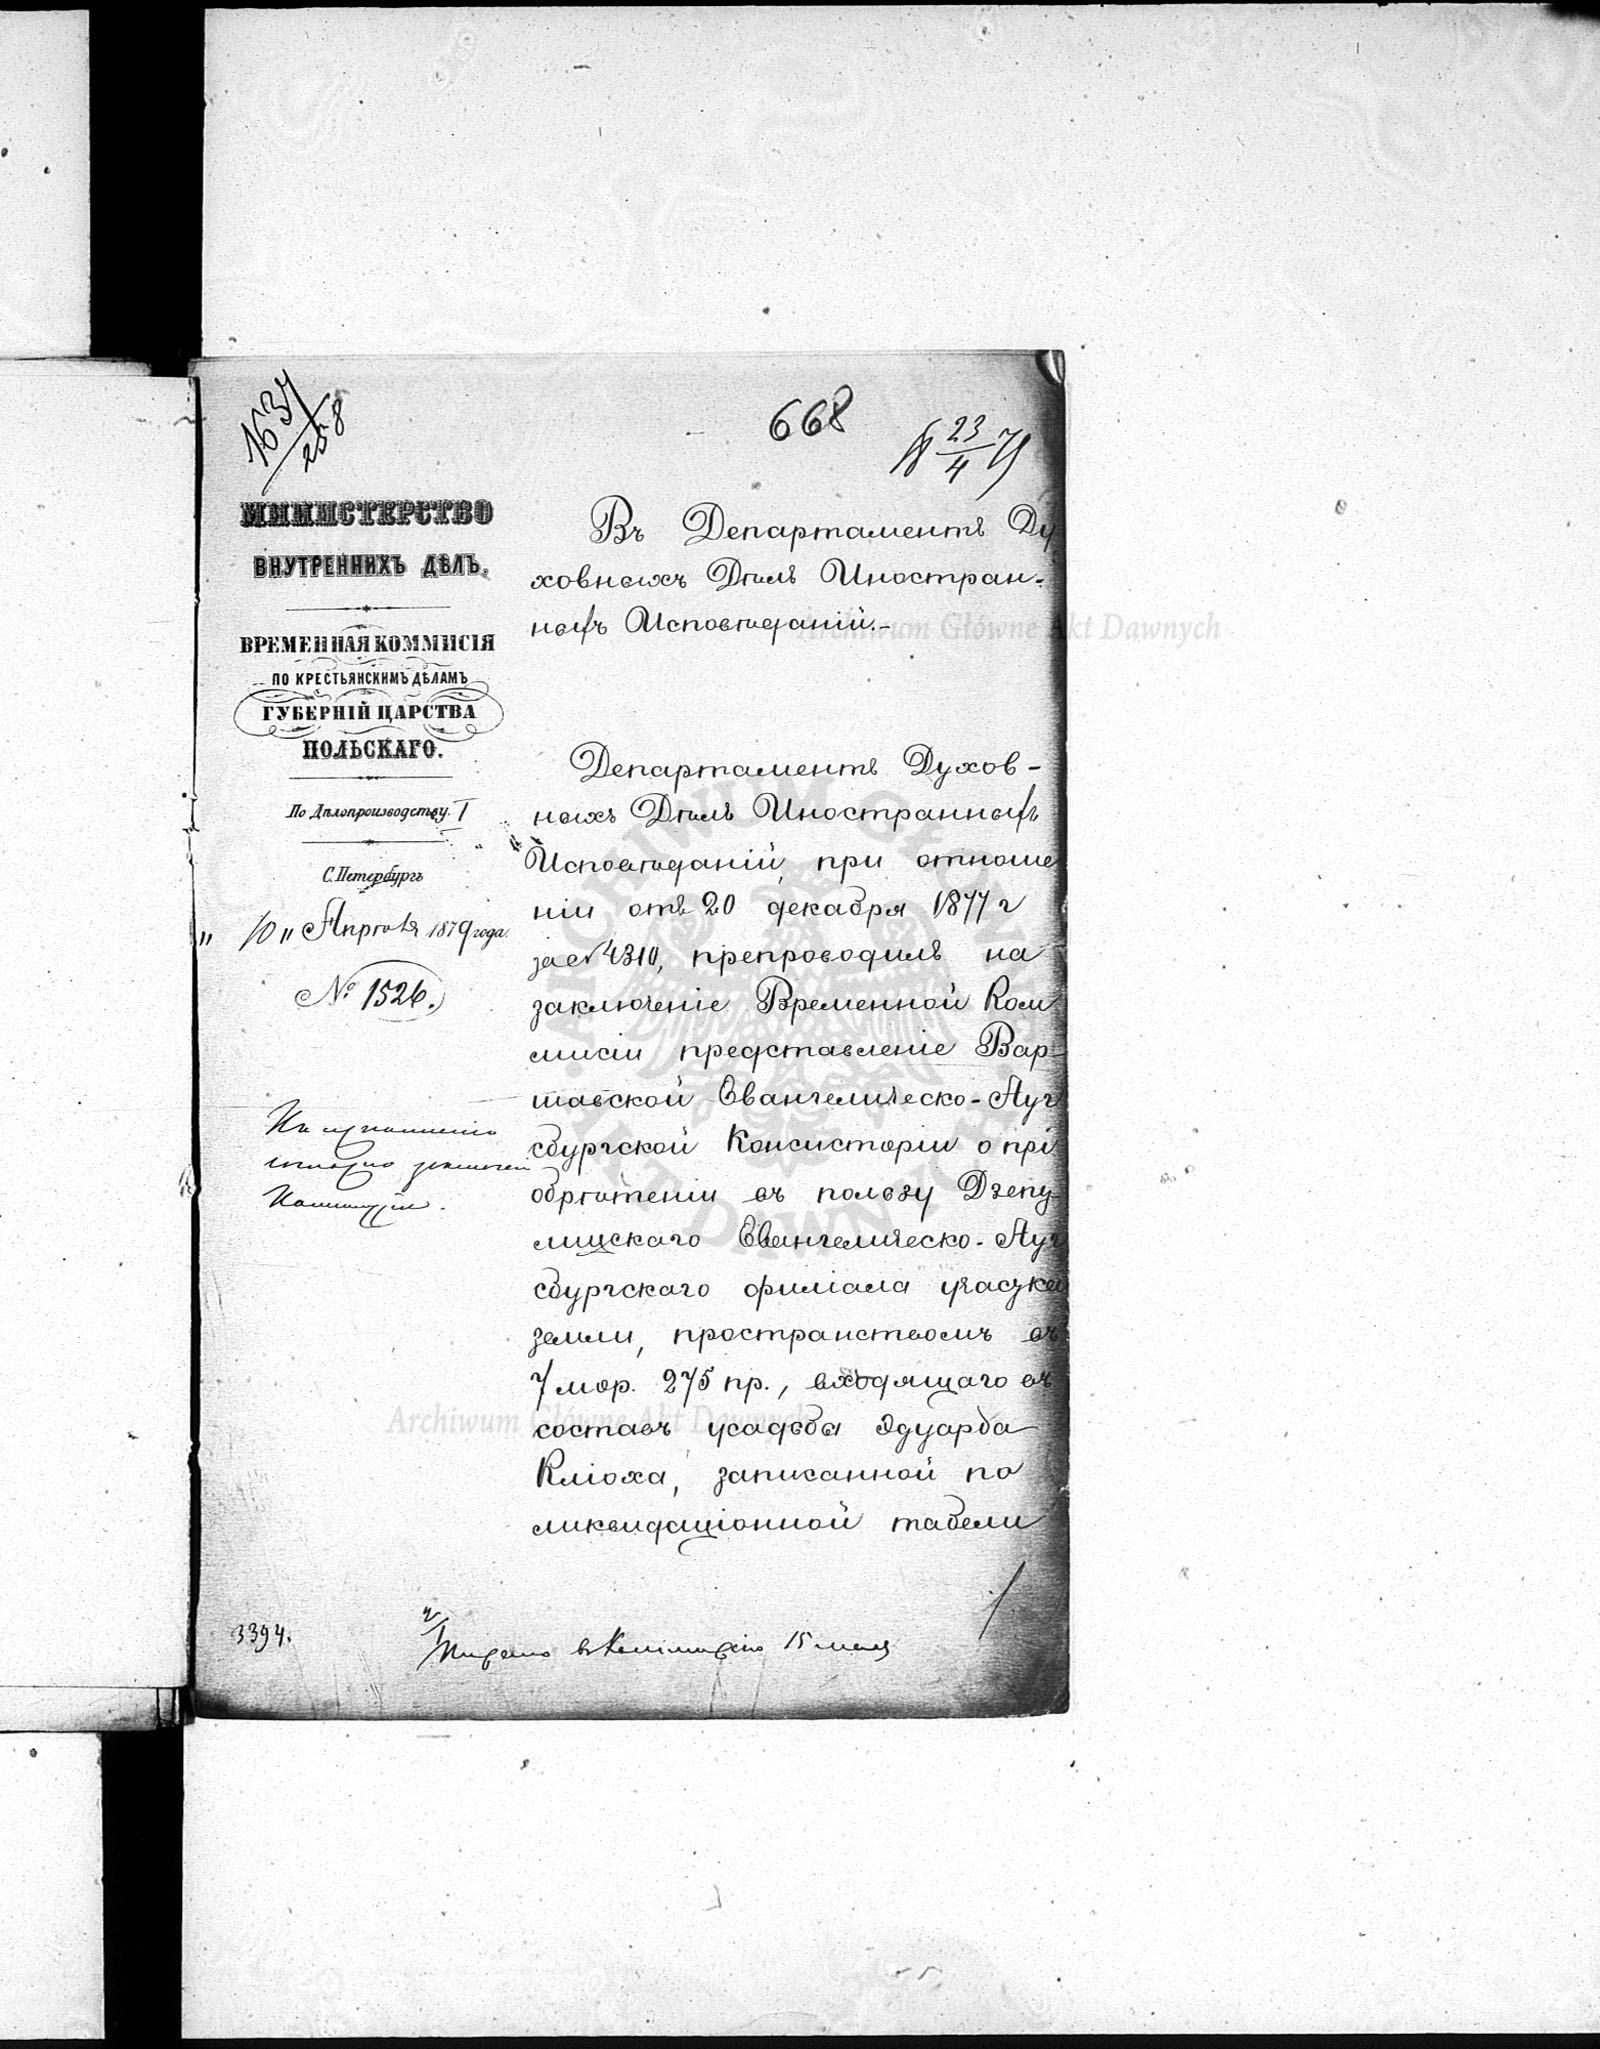 1637/258
668
23/4 79
МИНИСТЕРСТВО
ВНУТРЕННИХЪ ДѢЛЪ.
ВРЕМЕННАЯ КОММИСІЯ
ПО КРЕСТЬЯНСКИМЪ ДѢЛАМЪ
ГУБЕРНІЙ ЦАРСТВА
ПОЛЬСКАГО.
По Дѣлопроизводству I
С.Петербургъ
„ 10 „ Апрѣля 1879 года.
№ 1526.
Коммиссіи.
3394.
Въ Департаментъ Ду
ховныхъ Дѣлъ Иностран-
ныхъ Исповѣданій.-
Департаментъ Духов-
ныхъ Дѣлъ Иностранныхъ
Исповѣданій, при отноше
ніи отъ 20 декабря 1877 г
за № 4310, препроводилъ на
заключеніе Временной Ком
мисіи представленіе Вар-
шавской Евангелическо-Ауг
сбургской Консисторіи о прі
обрѣтеніи въ пользу Дзепу
лицскаго Евангелическо-Ауг
сбургскаго филіала участка
земли, пространствомъ въ
7 мор. 275 пр., входящаго въ
составъ усадьбы Эдуарда
Кліоха, записанной по
ликвидаціонной табели
въ Коммиссію 15 мая
Archiwum Główne Akt Dawnych
Archiwum Główne Akt Dawnych